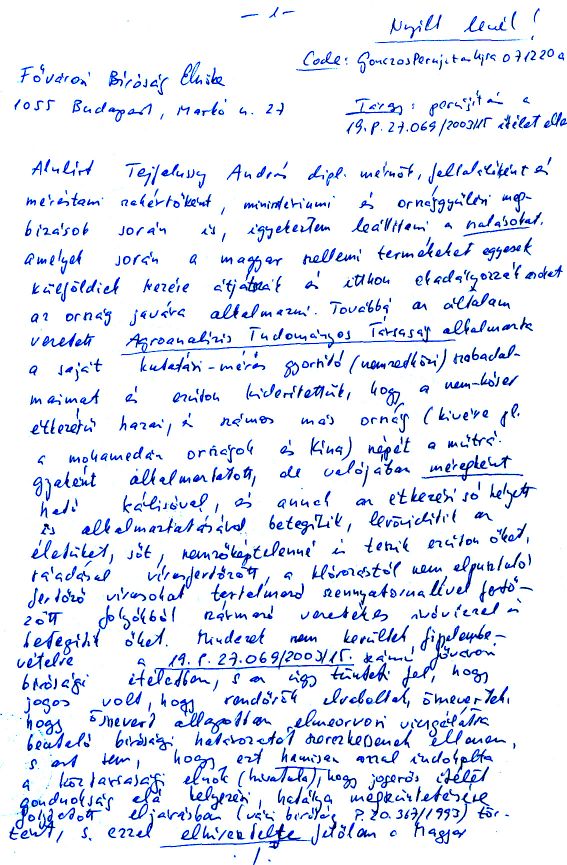 - 1 -
Nyílt levél!
Code: GonczosPerujitasUjra071220a
Főváros Bíróság Elnöke
1055 Budapest, Markó u. 27
Tárgy: perújítás a
19.P.27.069/2003/15 ítélet elle
Alulírt Tejfalussy András dipl. mérnök, feltalálóként és
méréstani szakértőként, minisztériumi és országgyűlési meg-
bízások során is, igyekeztem leállítani a
amelyek során a magyar szellemi termékeket egyesek
külföldiek kezére átjátszák és itthon akadályozzák azokat
az ország javára alkalmazni. Továbbá az általam
vezetett Agroanalízis Tudományos Társaság alkalmazta
a saját kutatási-mérés gyorsító (nemzetközi) szabadal-
maimat és ezúton kiderítettük, hogy a nem-kóser
étkezésű hazai, és számos más ország (kivéve pl.
a mohamedán országok és Kína) népét a műtrá-
gyaként alkalmaztatott, de valójában méregként
ható kálisóval, és annak az étkezési só helyett
is alkalmaztatásával betegítik, lerövidítik az
életüket, sőt, nemzőképtelenné is teszik ezúton őket,
ráadásul vírusfertőzött, a klórozástól nem elpusztuló
fertőző vírusokat tartalmazó szennyvizekkel fertő-
zött folyókból származó vezetékes ivóvízzel is
betegítik őket. Mindezek nem kerültek figyelembe-
vételre a 19.P.27.069/2003/15. számú fővárosi
bírósági ítéletben, s az úgy tünteti fel, hogy
jogos volt, hogy rendőrök elraboltak, összevertek,
hogy összevert állapotban elmeorvosi vizsgálatra
beutaló bírósági határozatot szerezhessenek ellenem,
s azt sem, hogy ezt hamisan azzal indokolta
a köztársasági elnök (hivatala), hogy jogerős ítélet
gondnokság alá helyezési, hatálya megszüntetésére
folytatott eljárásban (városi bíróság P.20.367/1993) tör-
tént, s ezzel elhíresztelte rólam a Magyar
/.